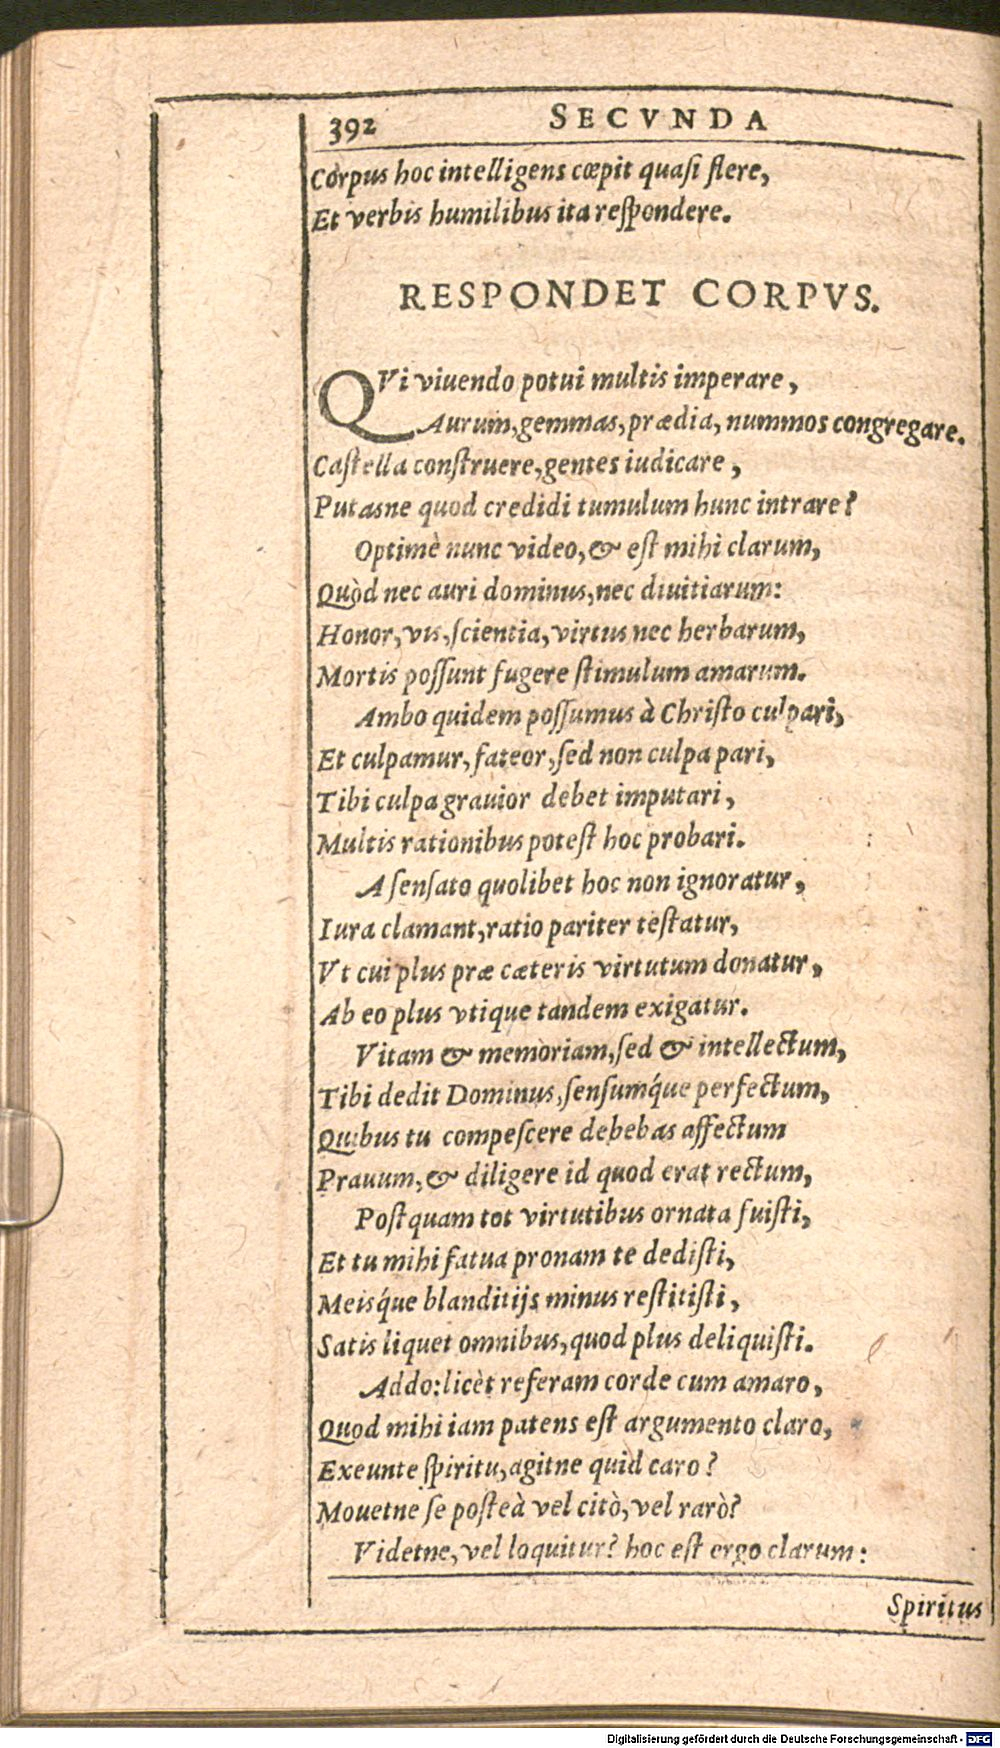 392 SECVNDA
Corpus hoc intelligens cœpit quasi flere,
Et verbis humilibus ita respondere.
RESPONDET CORPVS.
QVi viuendo potui multis imperare,
Aurum, gemmas, prædia, nummos congregare.
Castella construere, gentes iudicare,
Putasne quod credidi tumulum hunc intrare?
Optimè nunc video, & est mihi clarum,
Quòd nec auri dominus, nec diuitiarum:
Honor, vis, scientia, virtus nec herbarum,
Mortis possunt fugere stimulum amarum.
Ambo quidem possumus à Christo culpari,
Et culpamur, fateor, sed non culpa pari,
Tibi culpa grauior debet imputari,
Multis rationibus potest hoc probari.
A sensato quolibet hoc non ignoratur,
Iura clamant, ratio pariter testatur,
Vt cui plus præ cæteris virtutum donatur,
Ab eo plus vtique tandem exigatur.
Vitam & memoriam, sed & intellectum,
Tibi dedit Dominus, sensumq́ue perfectum,
Quibus tu compescere debebas affectum
Prauum, & diligere id quod erat rectum,
Postquam tot virtutibus ornata fuisti,
Et tu mihi fatua pronam te dedisti,
Meisq́ue blanditijs minus restitisti,
Satis liquet omnibus, quod plus deliquisti.
Addo: licèt referam corde cum amaro,
Quod mihi iam patens est argumento claro,
Exeunte spiritu, agitne quid caro?
Mouetne se posteà vel citò, vel rarò?
Videtne, vel loquitur? hoc est ergo clarum:
Spiritus
Digitalisierung gefördert durch die Deutsche Forschungsgemeinschaft - DFG